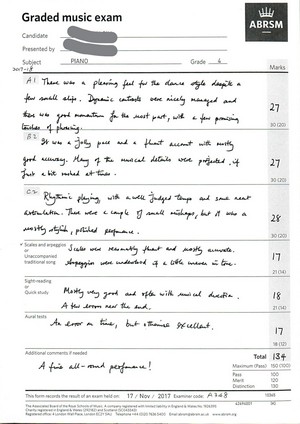 Graded music exam
ABRSM
Candidate
Presented by
Subject PIANO Grade 4
2017-18
Marks
A1 There was a pleasing feel for the dance style despite a
few small slips. Dynamic contrasts were nicely managed and
there was good momentum for the most part, with a few promising
touches of phrasing.
27
30 (20)
B2 It was a jolly pace and a fluent account with mostly
good accuracy. Many of the musical details were projected, if
just a bit rushed at times.
27
30 (20)
C2 Rhythmic playing with a well judged tempo and some neat
articulation. There were a couple of small mishaps, but it was a
mostly stylish, polished performance.
28
30 (20)
Scales and arpeggios
or
Unaccompanied
traditional song
Scales were reasonably fluent and mostly accurate.
Arpeggios were understood if a little uneven in tone.
17
21 (14)
Sight-reading
or
Quick study
Mostly very good and often with musical direction.
A few errors near the end.
18
21 (14)
Aural tests
An error at times, but otherwise excellent.
17
18 (12)
Additional comments if needed
Total 134
A fine all-round performance!
Maximum (Pass) 150 (100)
Pass 100
Merit 120
Distinction 130
This form records the result of an exam held on 17 / Nov / 2017 Examiner code: A328
The Associated Board of the Royal Schools of Music.